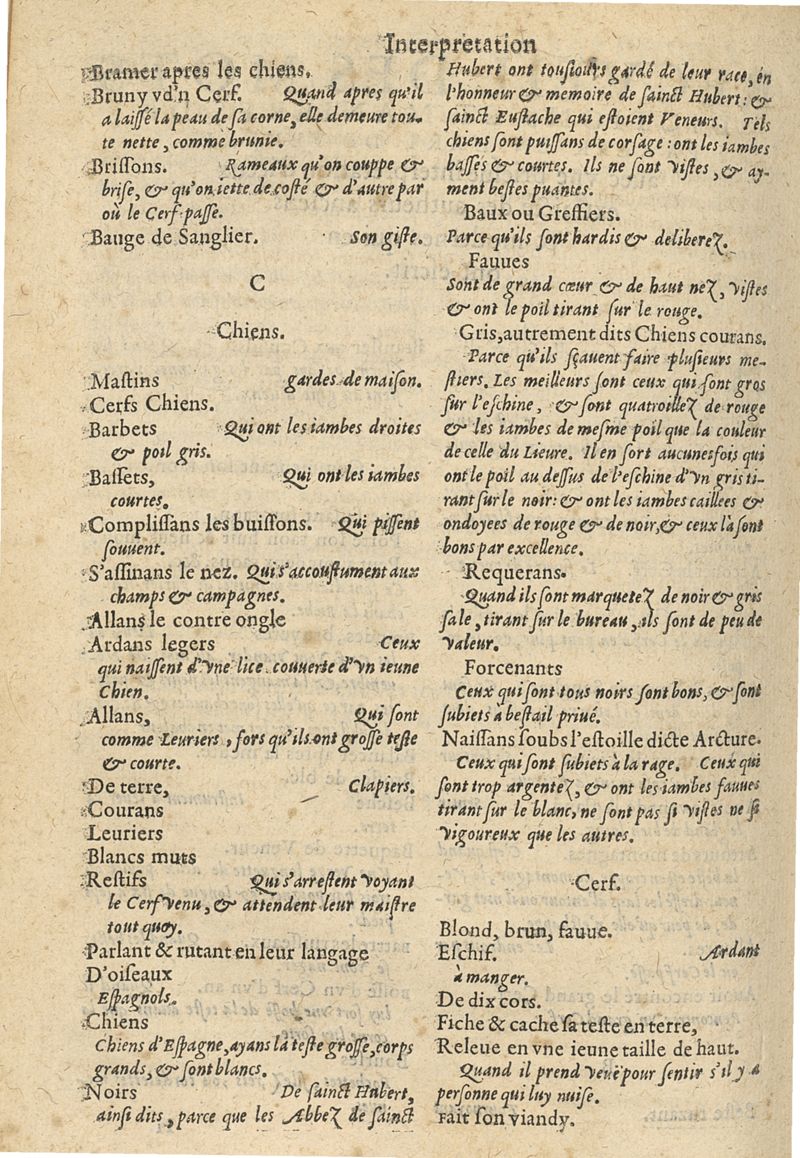 Interpretation
Bramer apres les chiens.
Bruny vd'n Cerf. Quand apres qu'il
a laissé la peau de sa corne, elle demeure tou-
te nette, comme brunie.
Brissons. Rameaux qu'on couppe &
brise, & qu'on iette de costé & d'autre par
où le Cerf passe.
Bauge de Sanglier. Son giste.
C
Chiens.
Mastins gardes de maison.
Cerfs Chiens.
Barbets Qui ont les iambes droites
& poil gris.
Bassets, Qui ont les iambes
courtes.
Complissans les buissons. Qui pissent
souuent.
S'assinans le nez. Qui s'accoustument aux
champs & campagnes.
Allans le contre ongle
Ardans legers Ceux
qui naissent d'vne lice couuerte d'vn ieune
Chien.
Allans, Qui sont
comme Leuriers, fors qu'ils ont grosse teste
& courte.
De terre, Clapiers.
Courans
Leuriers
Blancs muts
Restifs Qui s'arrestent voyant
le Cerf venu, & attendent leur maistre
tout quoy.
Parlant & rutant en leur langage
D'oiseaux
Espagnols.
Chiens
Chiens d'Espagne, ayans la teste grosse, corps
grands, & sont blancs.
Noirs De sainct Hubert,
ainsi dits, parce que les Abbez de sainct
Hubert ont tousiours gardé de leur race, en
l'honneur & memoire de sainct Hubert: &
sainct Eustache qui estoient Veneurs. Tels
chiens sont puissans de corsage: ont les iambes
basses & courtes. Ils ne sont vistes, & ay-
ment bestes puantes.
Baux ou Greffiers.
Parce qu'ils sont hardis & deliberez.
Fauues
Sont de grand cœur & de haut nez, vistes
& ont le poil tirant sur le rouge.
Gris, autrement dits Chiens courans.
Parce qu'ils sçauent faire plusieurs me-
stiers. Les meilleurs sont ceux qui sont gros
sur l'eschine, & sont quatroillez de rouge
& les iambes de mesme poil que la couleur
de celle du Lieure. Il en sort aucunesfois qui
ont le poil au dessus de l'eschine d'vn gris ti-
rant sur le noir: & ont les iambes caillees &
ondoyees de rouge & de noir, & ceux là sont
bons par excellence.
Requerans.
Quand ils sont marquetez de noir & gris
sale, tirant sur le bureau, ils sont de peu de
valeur.
Forcenants
Ceux qui sont tous noirs sont bons, & sont
subiets à bestail priué.
Naissans soubs l'estoille dicte Arcture.
Ceux qui sont subiets à la rage. Ceux qui
sont trop argentez, & ont les iambes fauues
tirant sur le blanc, ne sont pas si vistes ne si
vigoureux que les autres.
Cerf.
Blond, brun, fauue.
Eschif. Ardant
à manger.
De dix cors.
Fiche & cache sa teste en terre,
Releue en vne ieune taille de haut.
Quand il prend veuë pour sentir s'il y a
personne qui luy nuise.
Fait son viandy.